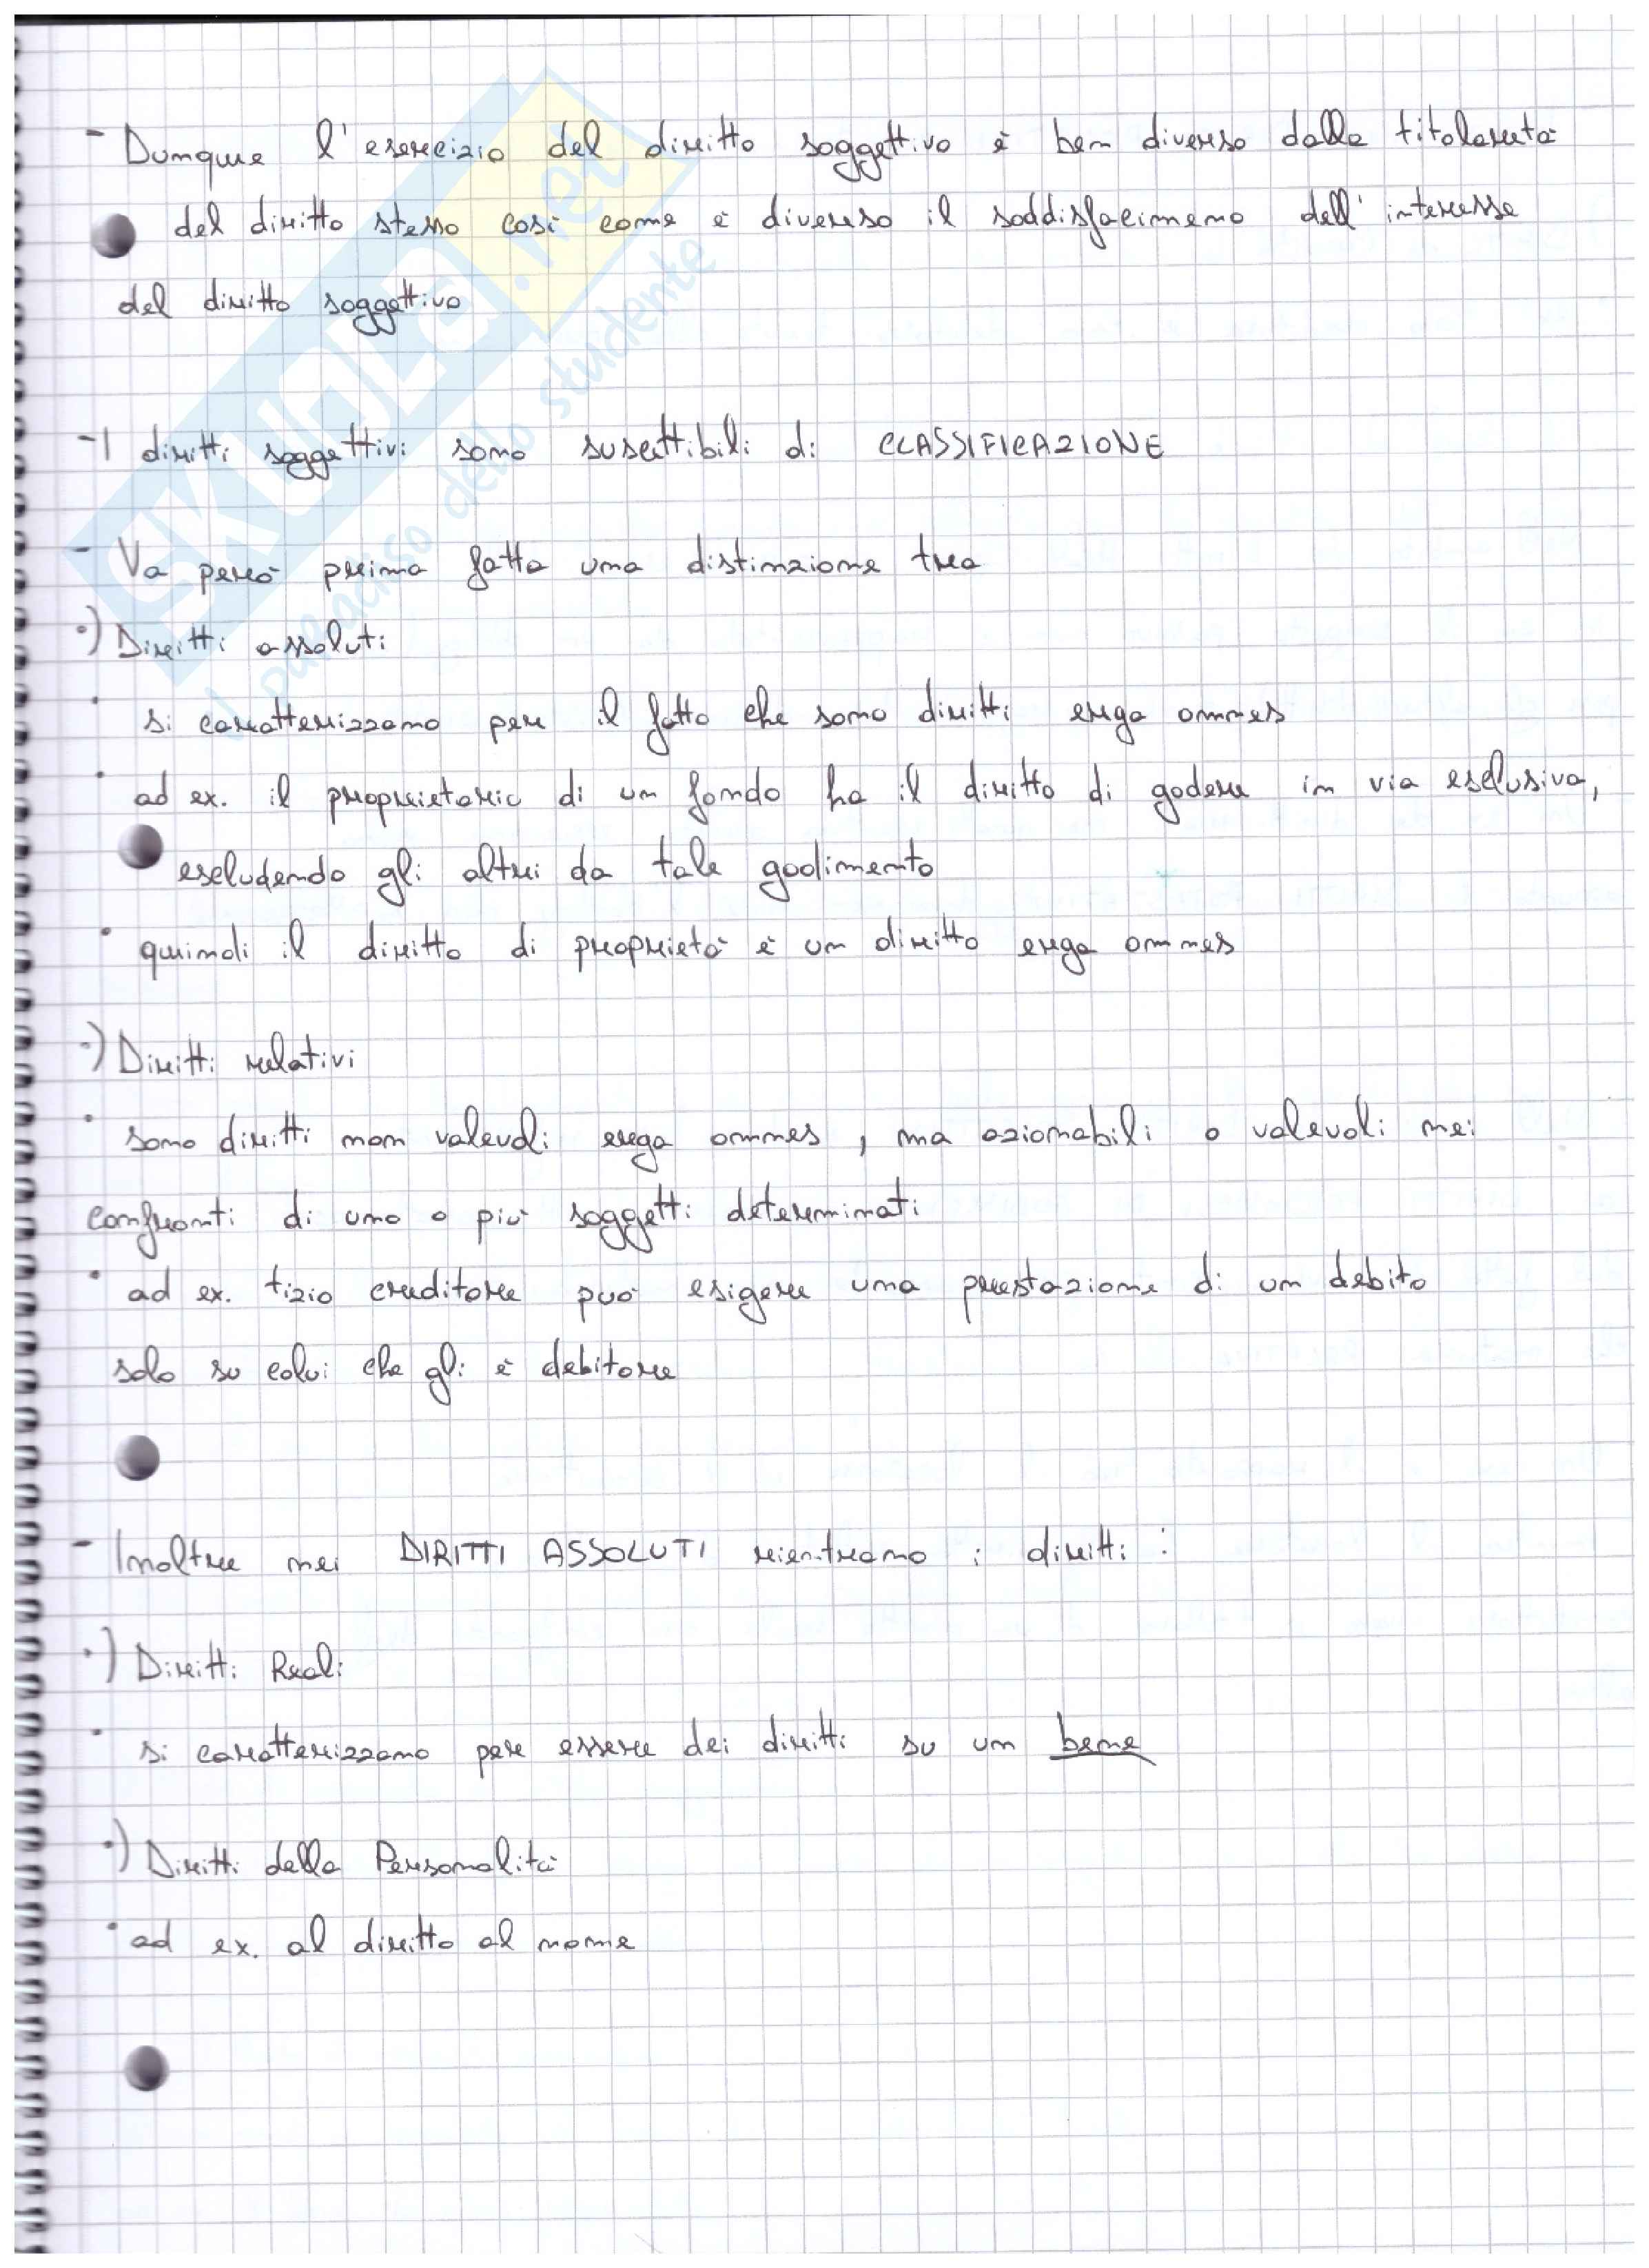 - Dunque l'esercizio del diritto soggettivo è ben diverso dalla titolarità
del diritto stesso così come è diverso il soddisfacimeno dell'interesse
del diritto soggettivo
- I diritti soggettivi sono suscettibili di CLASSIFICAZIONE
- Va però prima fatta una distinzione tra
·) Diritti assoluti
· si caratterizzano per il fatto che sono diritti erga omnes
· ad ex. il proprietario di un fondo ha il diritto di godere in via esclusiva,
escludendo gli altri da tale godimento
· quindi il diritto di proprietà è un diritto erga omnes
·) Diritti relativi
· sono diritti non valevoli erga omnes, ma azionabili o valevoli nei
confronti di uno o più soggetti determinati
· ad ex. tizio creditore può esigere una prestazione di un debito
solo su colui che gli è debitore
- Inoltre nei DIRITTI ASSOLUTI rientrano i diritti:
·) Diritti Reali
· si caratterizzano per essere dei diritti su un bene
·) Diritti della Personalità
· ad ex. al diritto al nome
SKUOLA.net
il paradiso dello studente